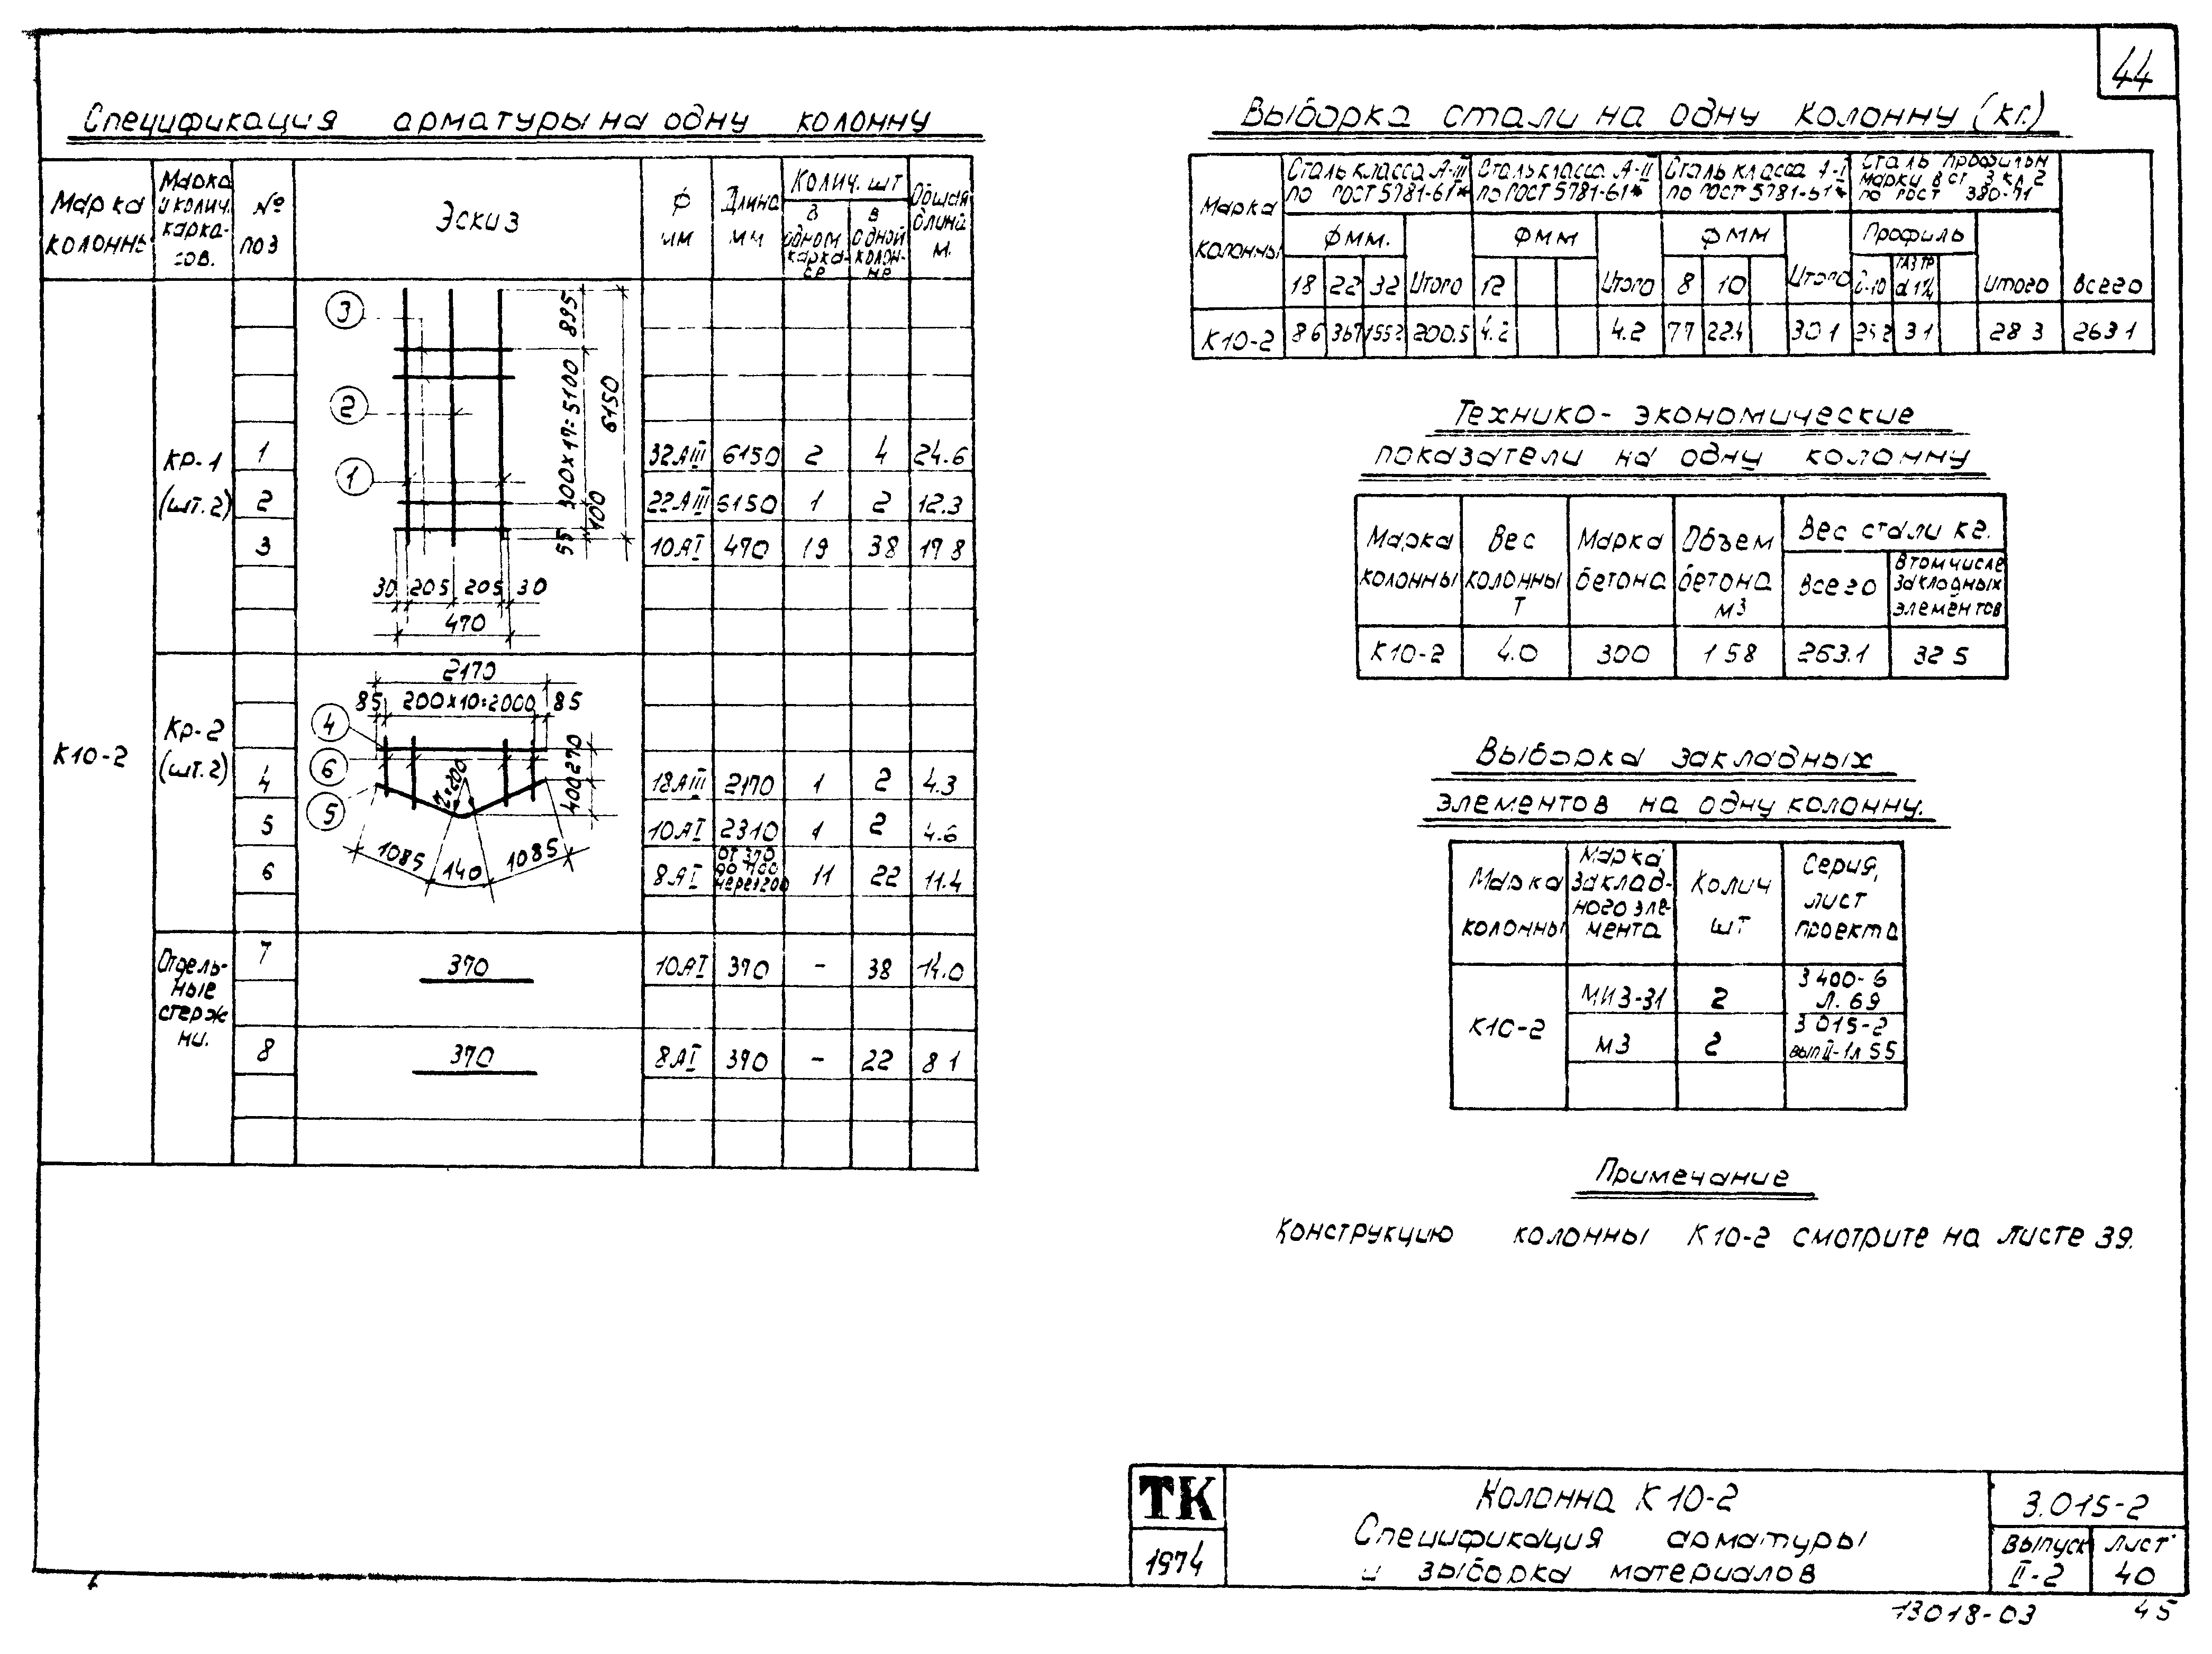 44
Спецификация арматуры на одну колонну
Марка колонны
Марка и колич. каркасов.
№ поз
Эскиз
Ф мм
Длина мм
Колич. шт
В одном каркасе
В одной колонне
Общая длина м.
К10-2
Кр-1 (шт.2)
1 32АIII 6150 2 4 24.6
2 22АIII 6150 1 2 12.3
3 10АI 470 19 38 17 8
3
2
1
895
300х17=5100
6150
100
55
30 205 205 30
470
Кр-2 (шт.2)
4 18АIII 2170 1 2 4.3
5 10АI 2310 1 2 4.6
6 8АI от 370 до через 200 11 22 11.4
2170
85 200х10=2000 85
4
6
5
270
400
r=200
1085 140 1085
Отдельные стержни.
7 370 10АI 370 - 38 14.0
8 370 8АI 370 - 22 8 1
Выборка стали на одну колонну (кг.)
Марка колонны
Сталь класса А-III по ГОСТ 5781-61*
Сталь класса А-II по ГОСТ 5781-61*
Сталь класса А-I по ГОСТ 5781-61*
Сталь профильн марки В ст 3 кл 2 по ГОСТ 380-71
Фмм. Фмм Фмм Профиль
18 22 32 Итого 12 Итого 8 10 Итого Итого Всего
К10-2 8 6 367 155 2 200.5 4.2 4.2 7 7 22.4 30 1 25 2 3 1 28 3 263 1
Технико-экономические
показатели на одну колонну
Марка колонны
Вес колонны Т
Марка бетона
Объем бетона м3
Вес стали кг.
Всего
В том числе закладных элементов
К10-2 4.0 300 1 58 263.1 32 5
Выборка закладных
элементов на одну колонну.
Марка колонны
Марка закладного элемента
Колич шт
Серия, лист проекта
К10-2
МИЗ-31 2 3 400-6 Л. 69
М3 2 3 015-2 вып II-1 л 55
Примечание
Конструкцию колонны К10-2 смотрите на листе 39.
ТК
1974
Колонна К10-2
Спецификация арматуры
и выборка материалов
3.015-2
Выпуск II-2
Лист 40
13018-03 45